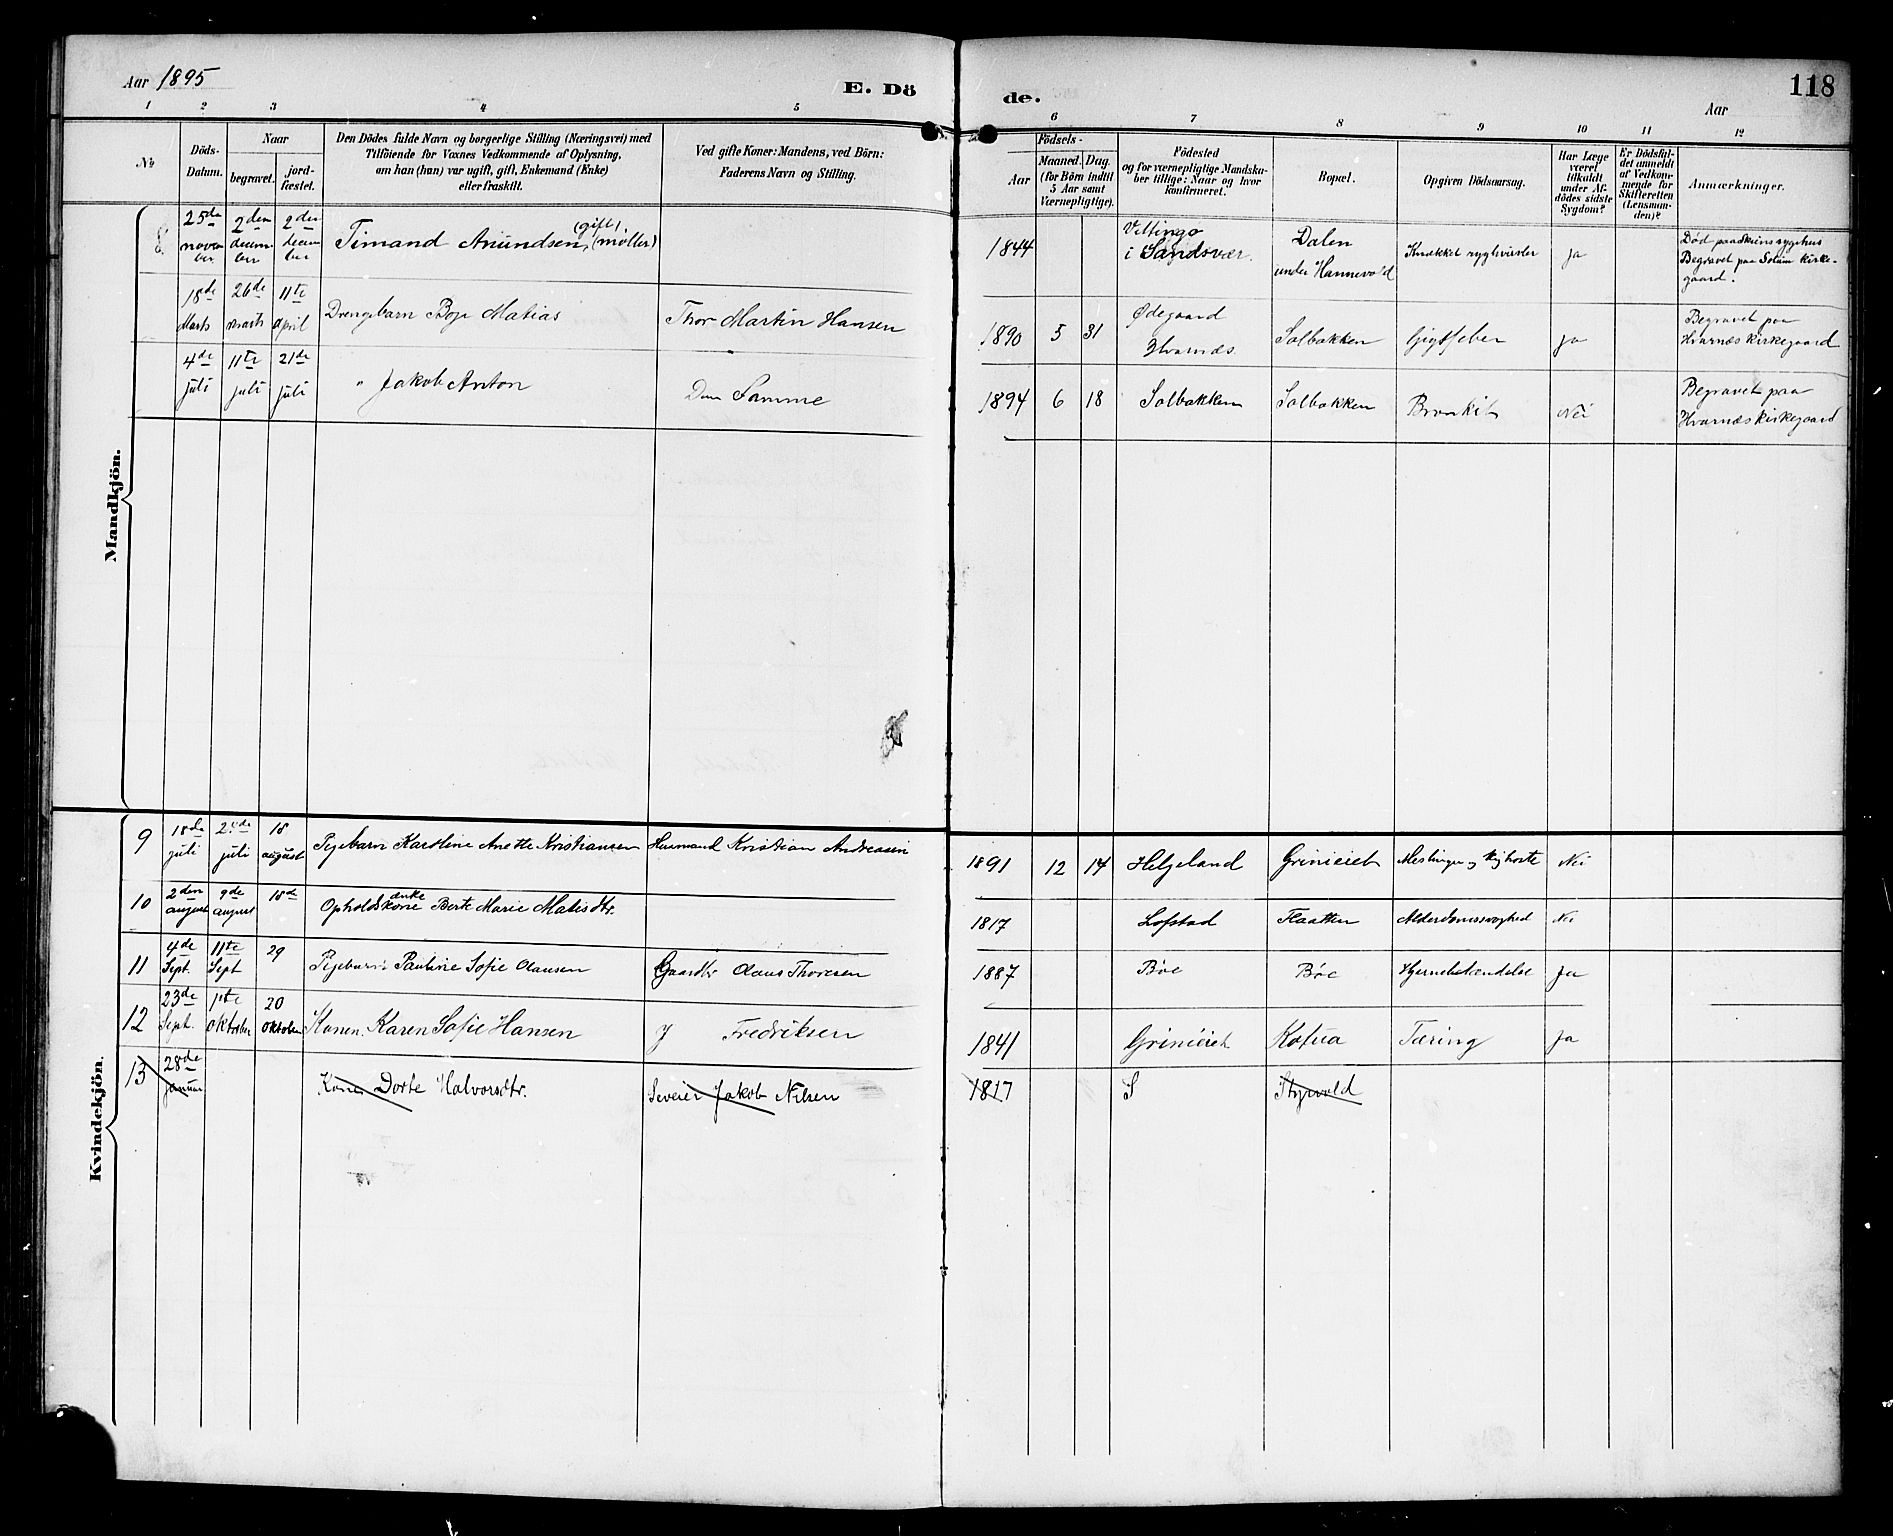 Aar 1895
E. Dö
de.
118
Aar
1 2 3 4 5 6 7 8 9 10 11 12
No
Döds-
Datum.
Naar
begravet.
jord-
fæstet.
Den Dödes fulde Navn og borgerlige Stilling (Næringsvei) med
Tilföiende for Voxnes Vedkommende af Oplysning,
om han (hun) var ugift, gift, Enkemand (Enke)
eller fraskilt.
Ved gifte Koner: Mandens, ved Börn:
Faderens Navn og Stilling.
Födsels-
Aar
Maaned. Dag.
(for Börn indtil
5 Aar samt
Værnepligtige).
Födested
og for værnepligtige Mandska-
ber tillige: Naar og hvor
konfirmeret.
Bopæl.
Opgiven Dödsaarsag.
Har Læge
været
tilkaldt
under Af-
dödes sidste
Sygdom?
Er Dödsfal-
det anmeldt
af Vedkom-
mende for
Skifteretten
(Lensman-
den)?
Anmærkninger.
Mandkjön.
8. 25de novem ber 2den decem ber 2den decem ber Timand Anundsen (gift) (møller) 1844 i Sandsvær. Dalen under Hannevold Knækket ryghvirvler Ja Død paa Skiens sygehus
Begravet paa Solum kirke-
gaard.
18de Marts 26de marts 11te april Drengebarn Boje Matias Thor Martin Hansen 1890 5 31 Ødegaard Hvarnæs. Solbakken Gigtfeber Ja Begravet paa
Hvarnæs kirkegaard
4de juli 11te juli 21de juli " Jakob Anton Den Samme 1894 6 18 Solbakken Solbakken Bronkit Nei Begravet paa
Hvarnæs kirkegaard
Kvindekjön
9 18de juli 25de juli 18 august Pigebarn Karoline Anette Kristiansen Huusmand Kristian Andreasen 1891 12 14 Helgeland Grinieiet Meslinger og kighoste Nei
10 2den august 9de august 18de Opholdskone enke Berte Marie Matisdtr. 1817 Lofstad Flaatten Alderdomssvaghed Nei
11 4de Sept. 11te Sept 29 Pigebarn Pauline Sofie Olausen Gaardbr Olaus Thoresen 1887 Bøe Bøe Hjernebetændelse Ja
12 23de Sept. 1ste oktober 20 oktober Konen Karen Sofie Hansen J Fredriksen 1841 Grinieiet Kofua Tæring Ja
13 28de januar Kone Dorte Halvorsdtr. Sveier Jakob Nilsen 1817 S Styrvold